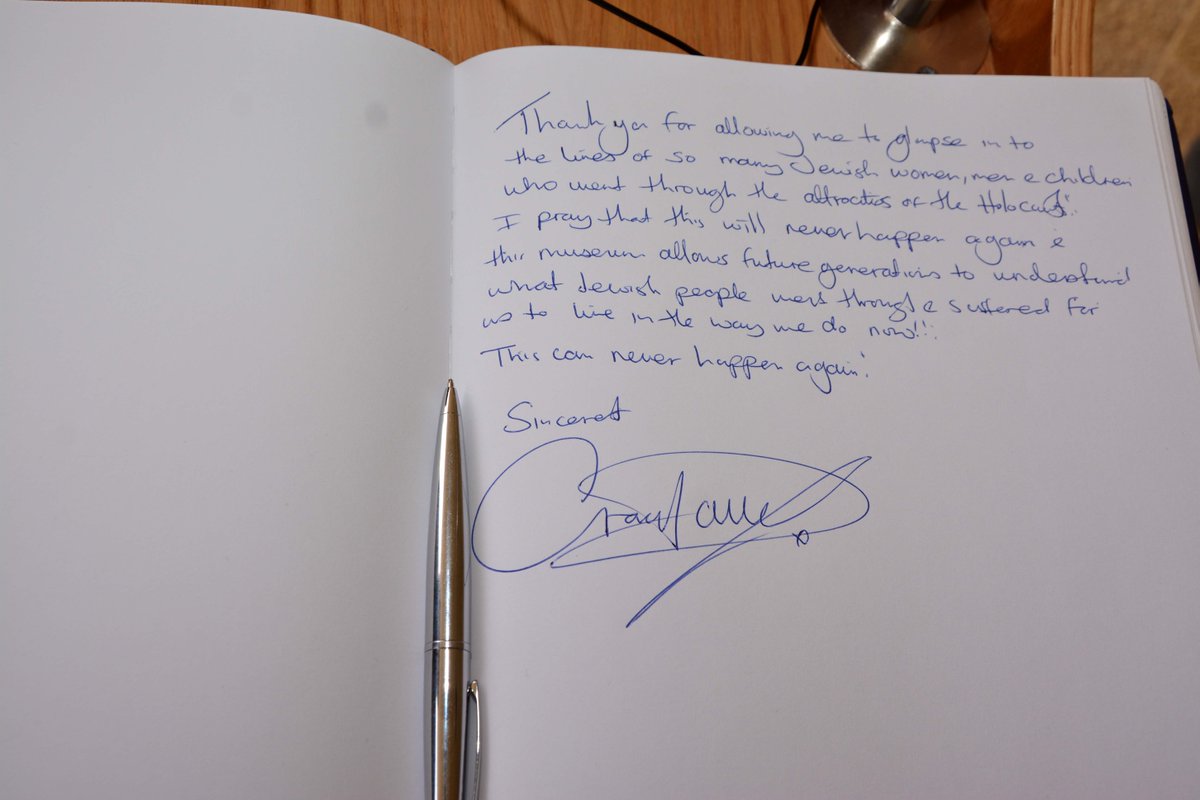 Thank you for allowing me to glimpse in to
the lives of so many Jewish women, men & children
who went through the attrocities of the Holocaust!!
I pray that this will never happen again &
this museum allows future generations to understand
what Jewish people went through & suffered for
us to live in the way we do now!!!
This can never happen again!
Sincerely
x